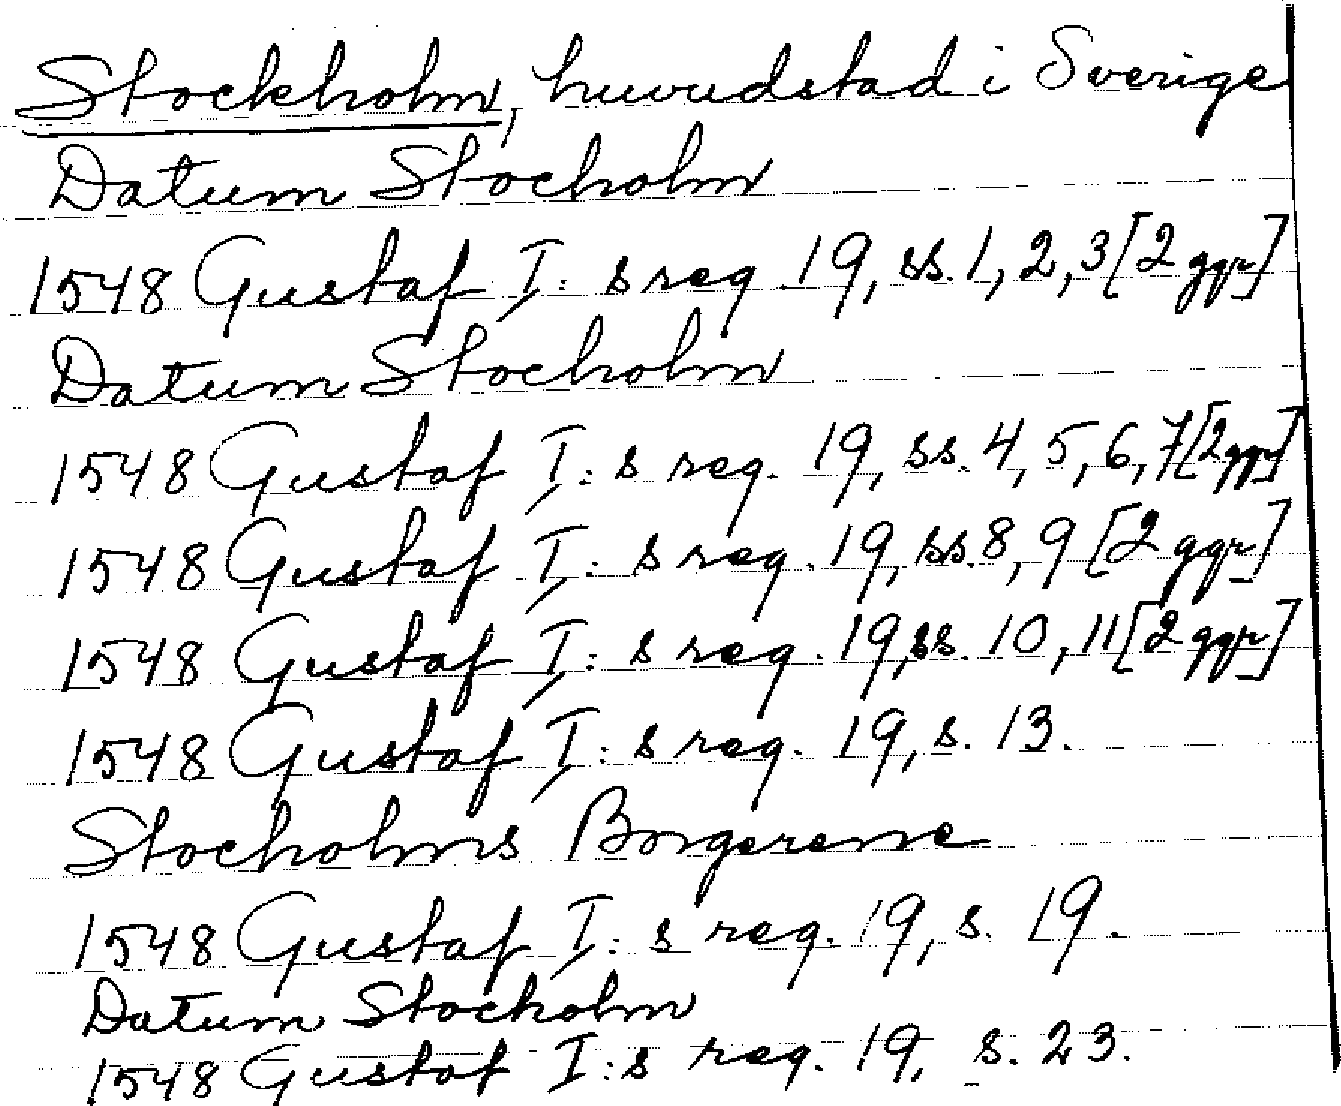 Stockholm, huvudstad i Sverige
Datum Stocholm
1548 Gustaf I:s reg. 19, ss. 1, 2, 3 [2 ggr]
Datum Stocholm
1548 Gustaf I:s reg. 19, ss. 4, 5, 6, 7 [2 ggr]
1548 Gustaf I:s reg. 19, ss. 8, 9 [2 ggr]
1548 Gustaf I:s reg. 19, ss. 10, 11 [2 ggr]
1548 Gustaf I:s reg. 19, s. 13.
Stocholms Borgerene
1548 Gustaf I:s reg. 19, s. 19.
Datum Stocholm
1548 Gustaf I:s reg. 19, s. 23.